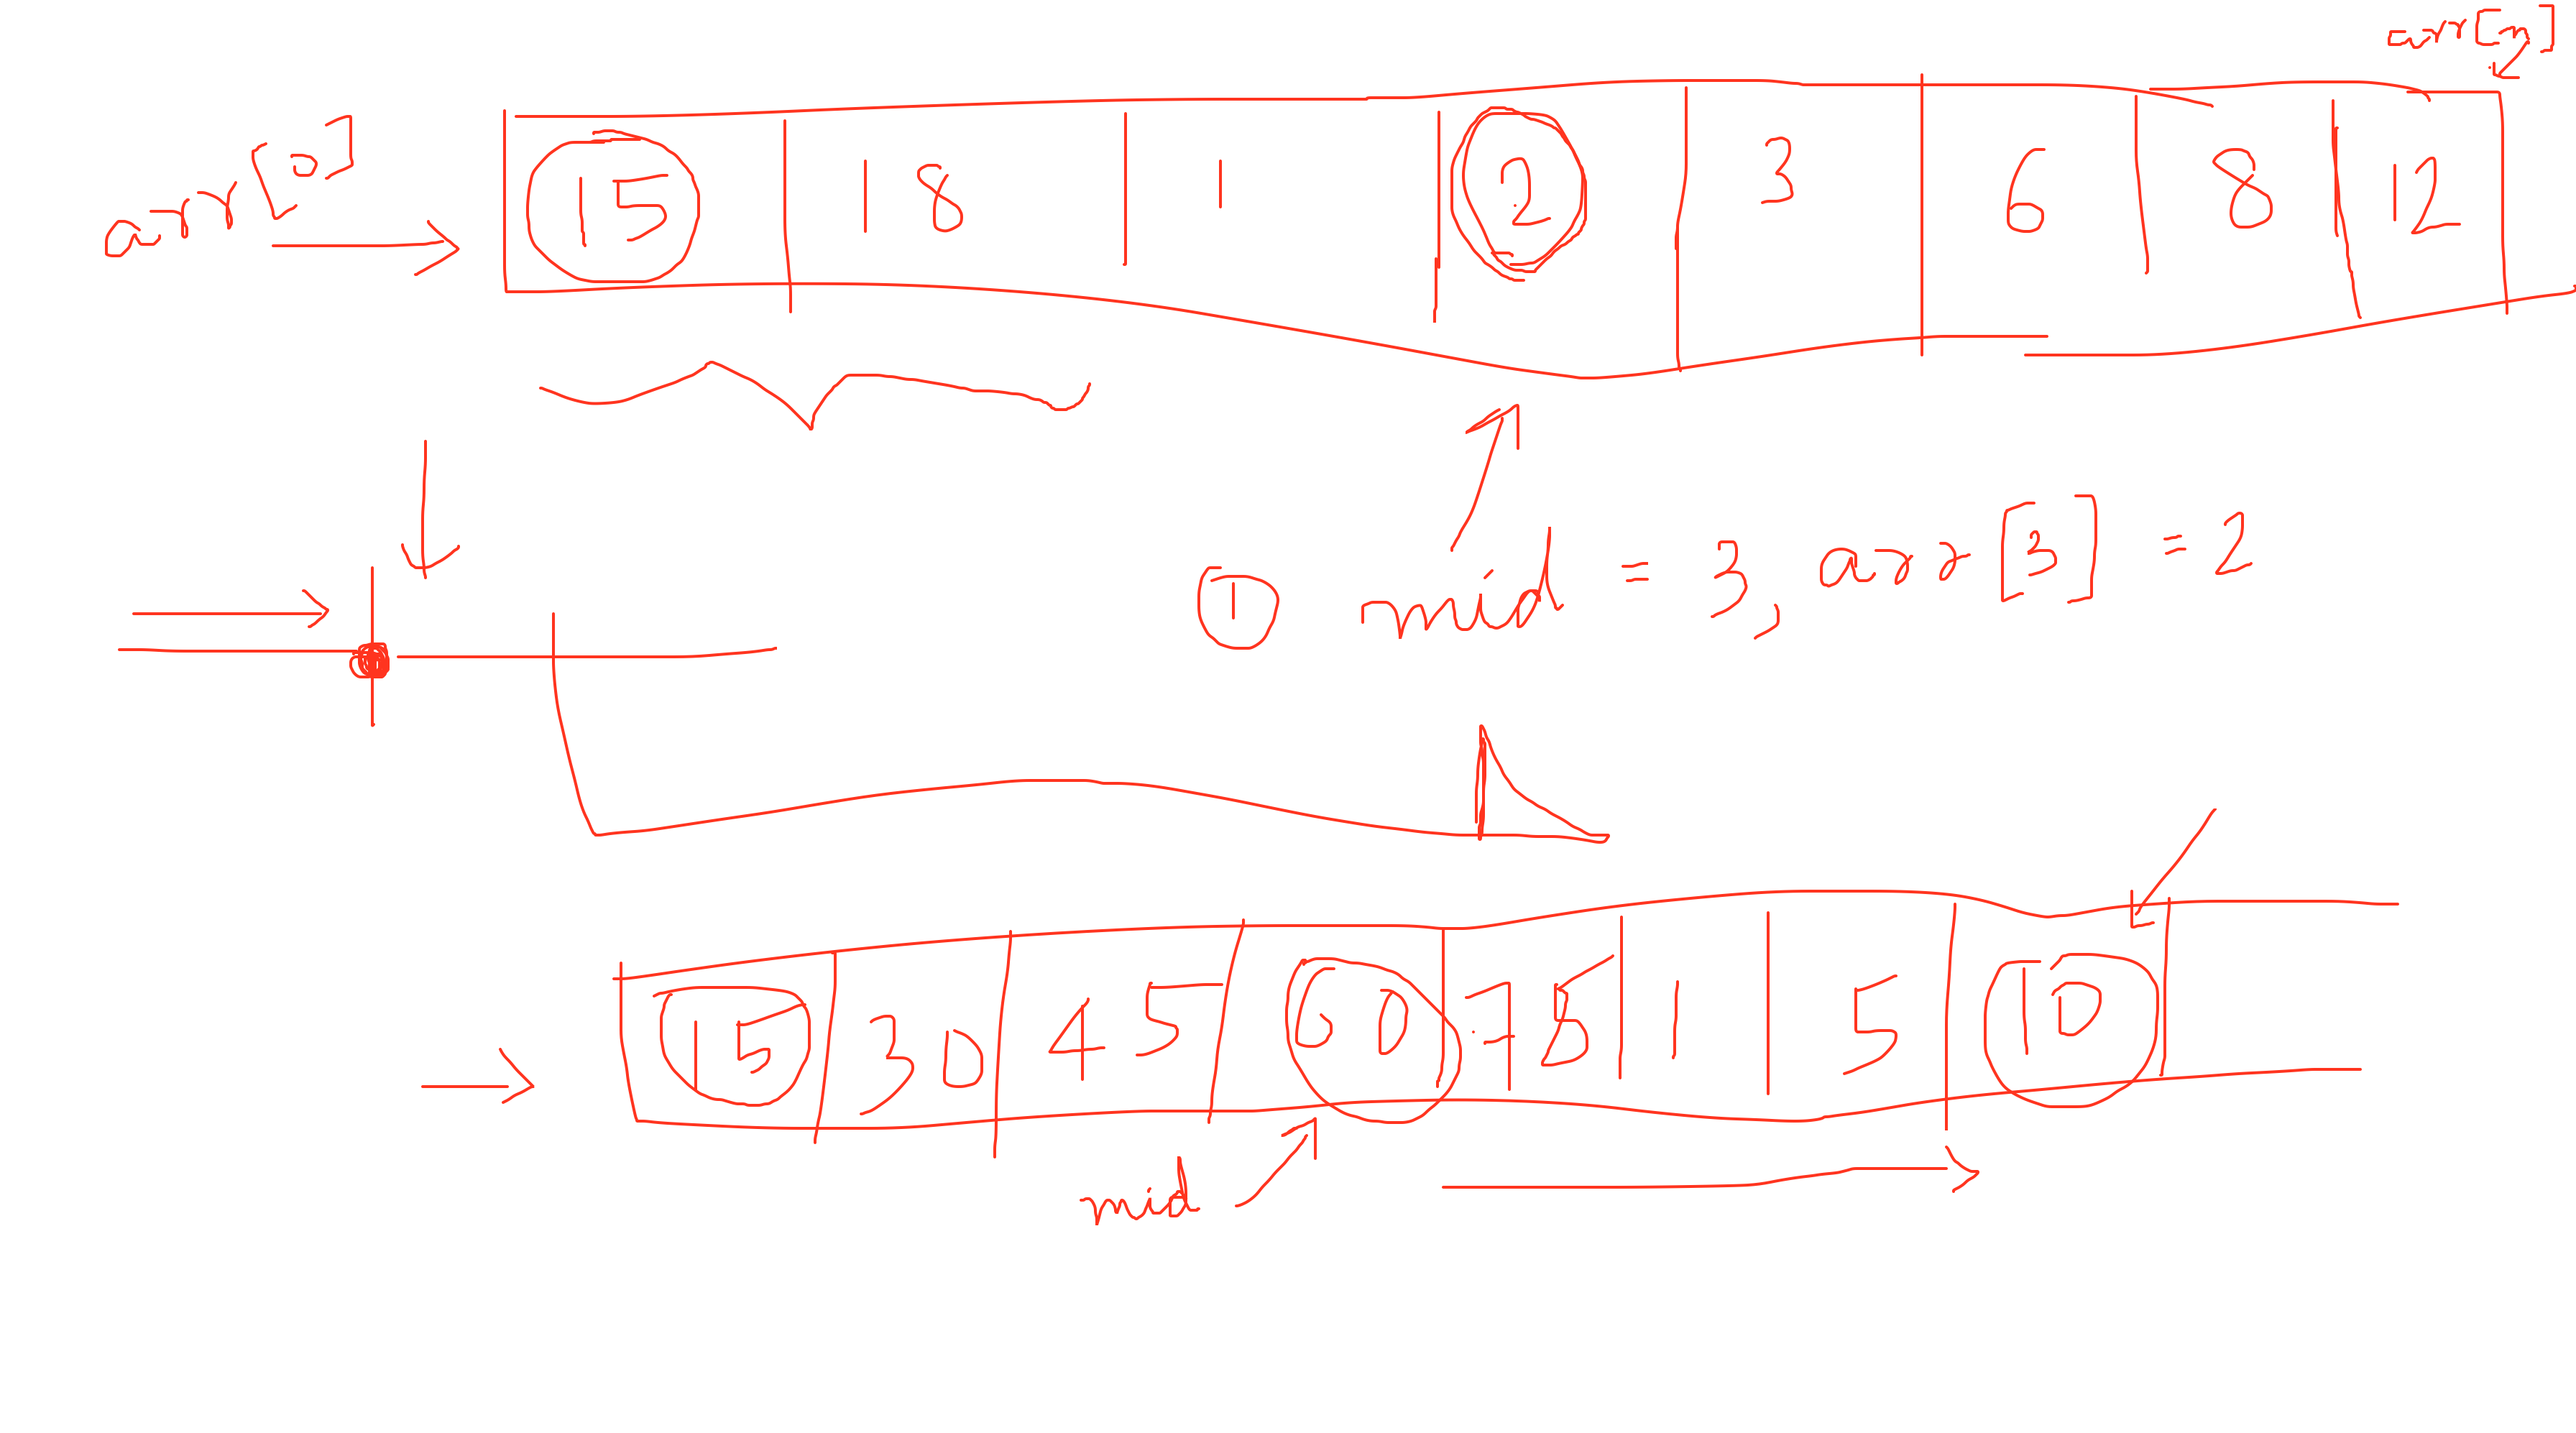 arr[n]
arr[0] 15 18 1 2 3 6 8 12
① mid = 3, arr[3] = 2
15 30 45 60 75 1 5 10
mid